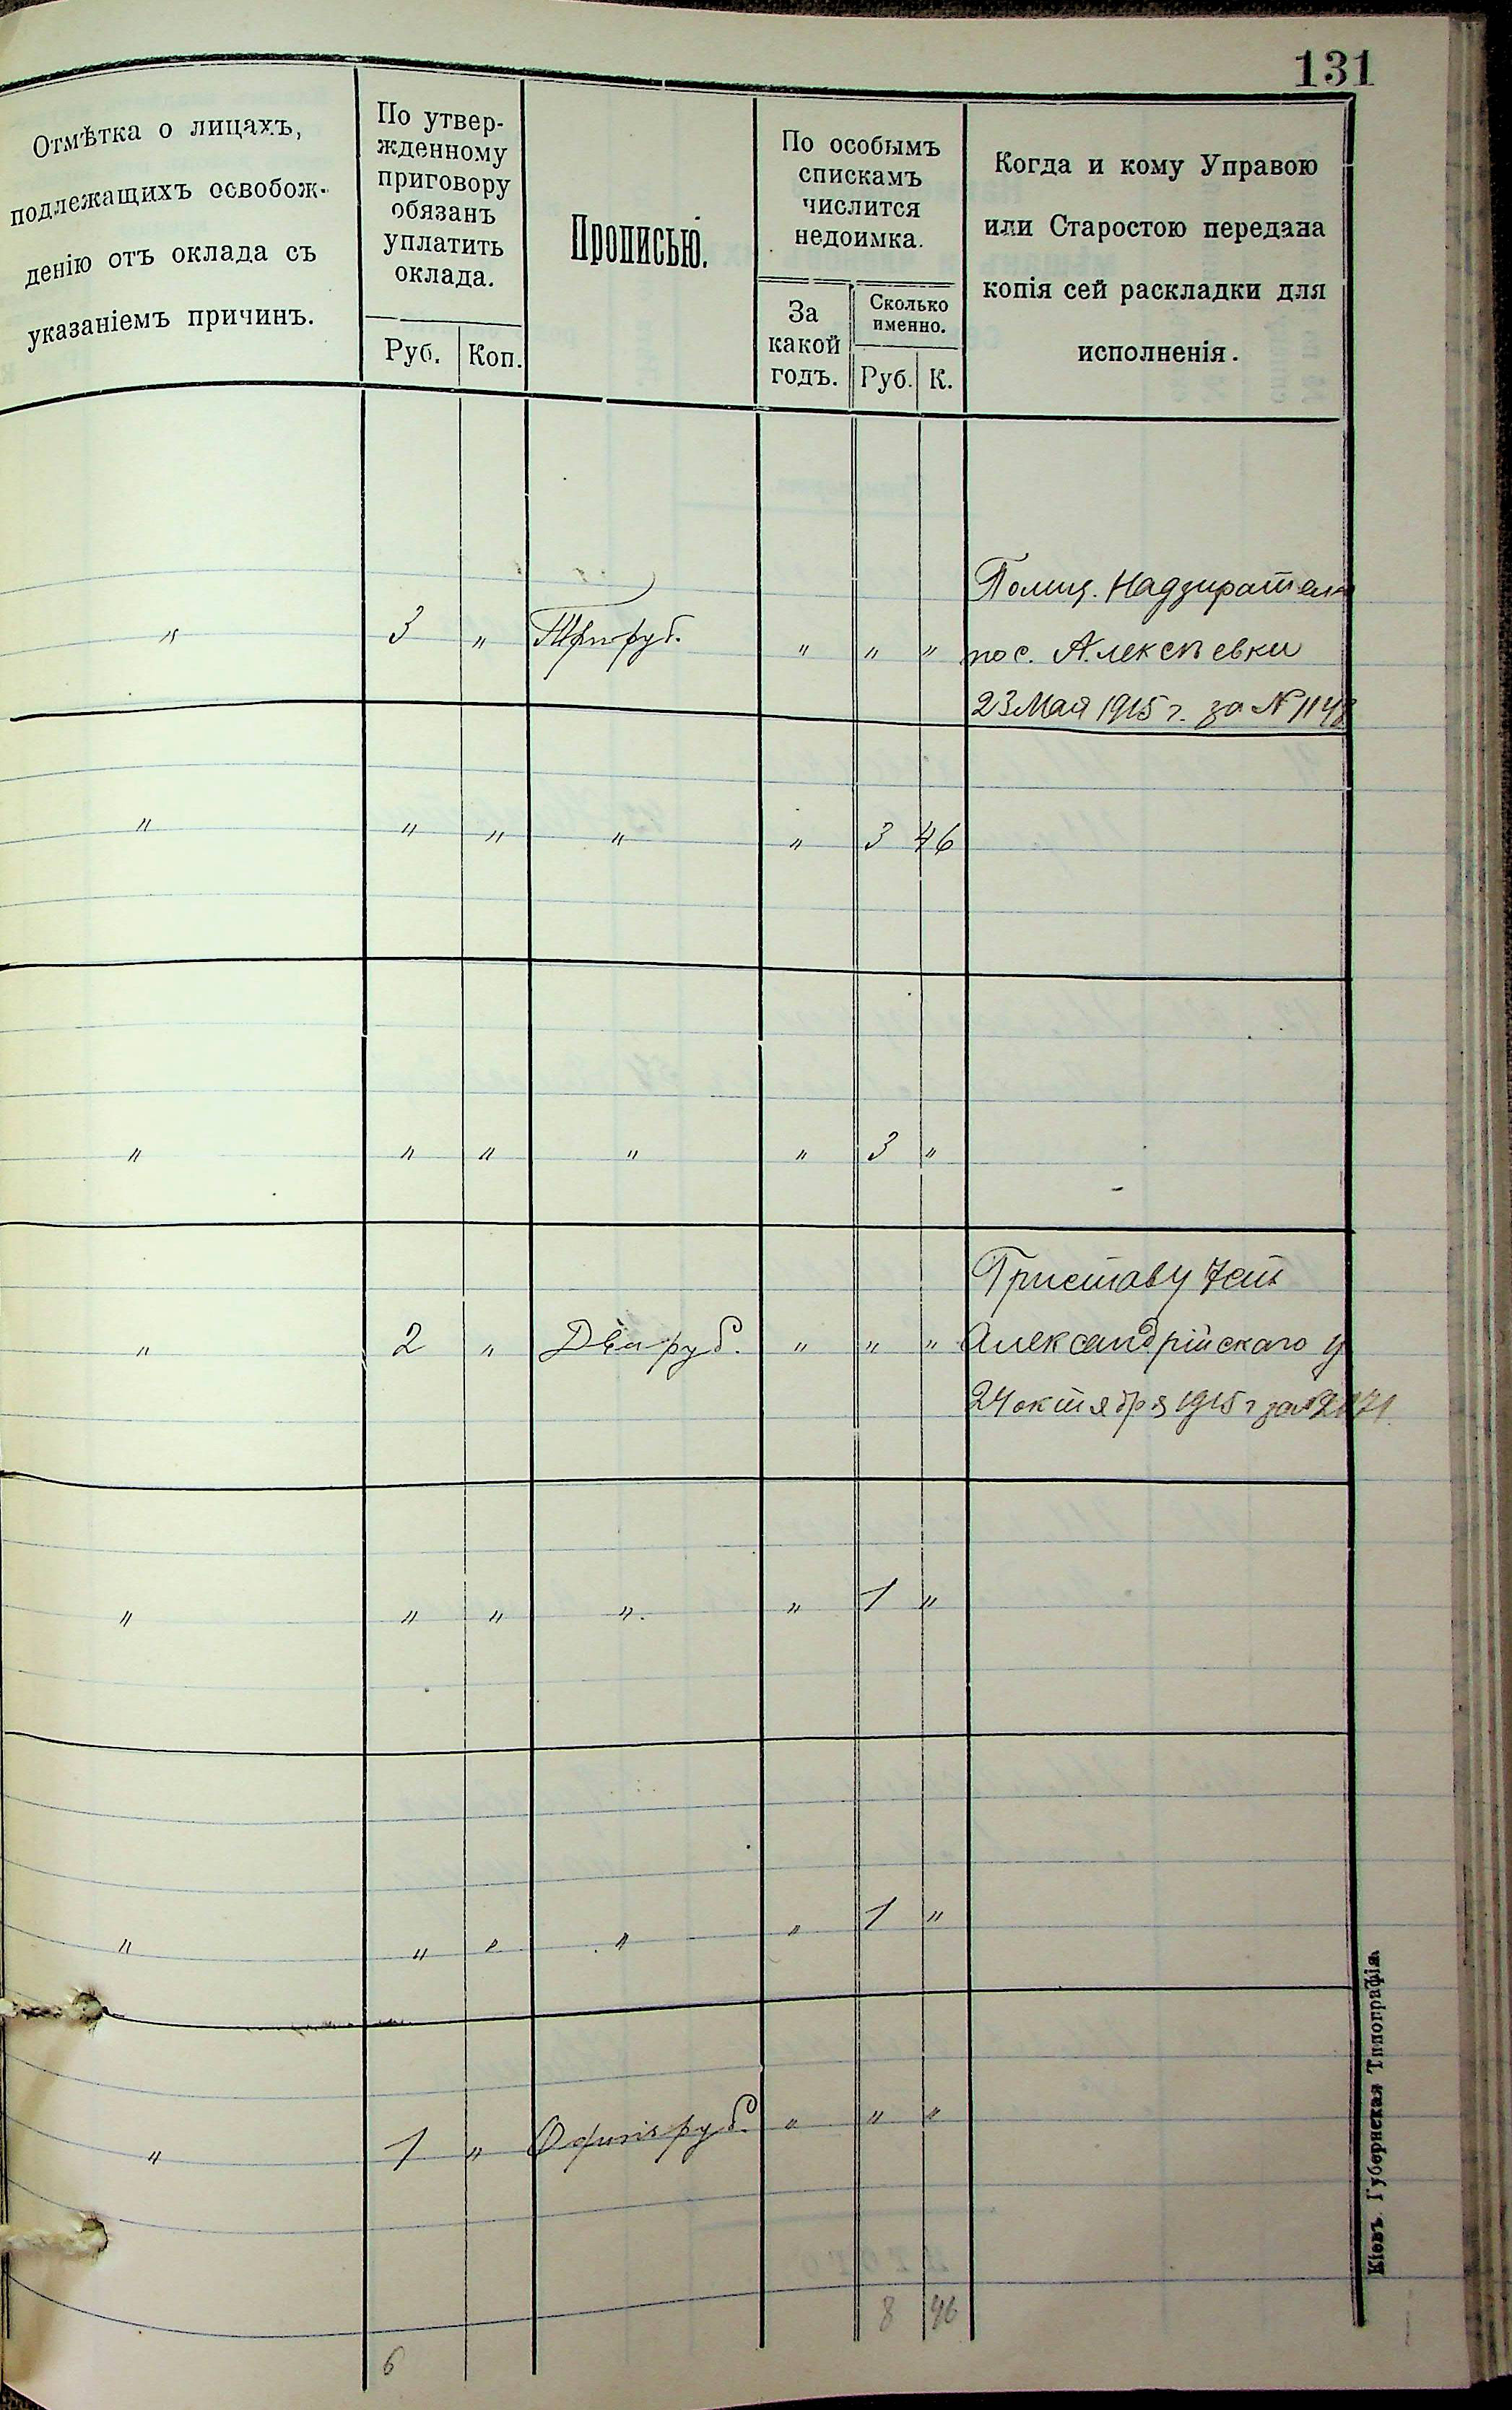 131
Отмѣтка о лицахъ,
подлежащихъ освобож-
денію отъ оклада съ
указаніемъ причинъ.
По утвер-
жденному
приговору
обязанъ
уплатить
оклада.
Руб. Коп.
Прописью.
По особымъ
спискамъ
числится
недоимка.
За
какой
годъ.
Сколько
именно.
Руб. К.
Когда и кому Управою
или Старостою передана
копія сей раскладки для
исполненія.
" 3 " Три руб. " " "
Полиц. Надзирателю
пос. Алексѣевки
23 Мая 1915 г. за № 1148
" " " " " 3 46
" " " " " 3 "
" 2 " Два руб. " " "
Приставу 7 ст
Александрійскаго у
24 октября 1915 г за №
" " " " " 1 "
" " " " " 1 "
" 1 " Одинъ руб. " " "
8 46
6
Кіевъ. Губернская Типографія.